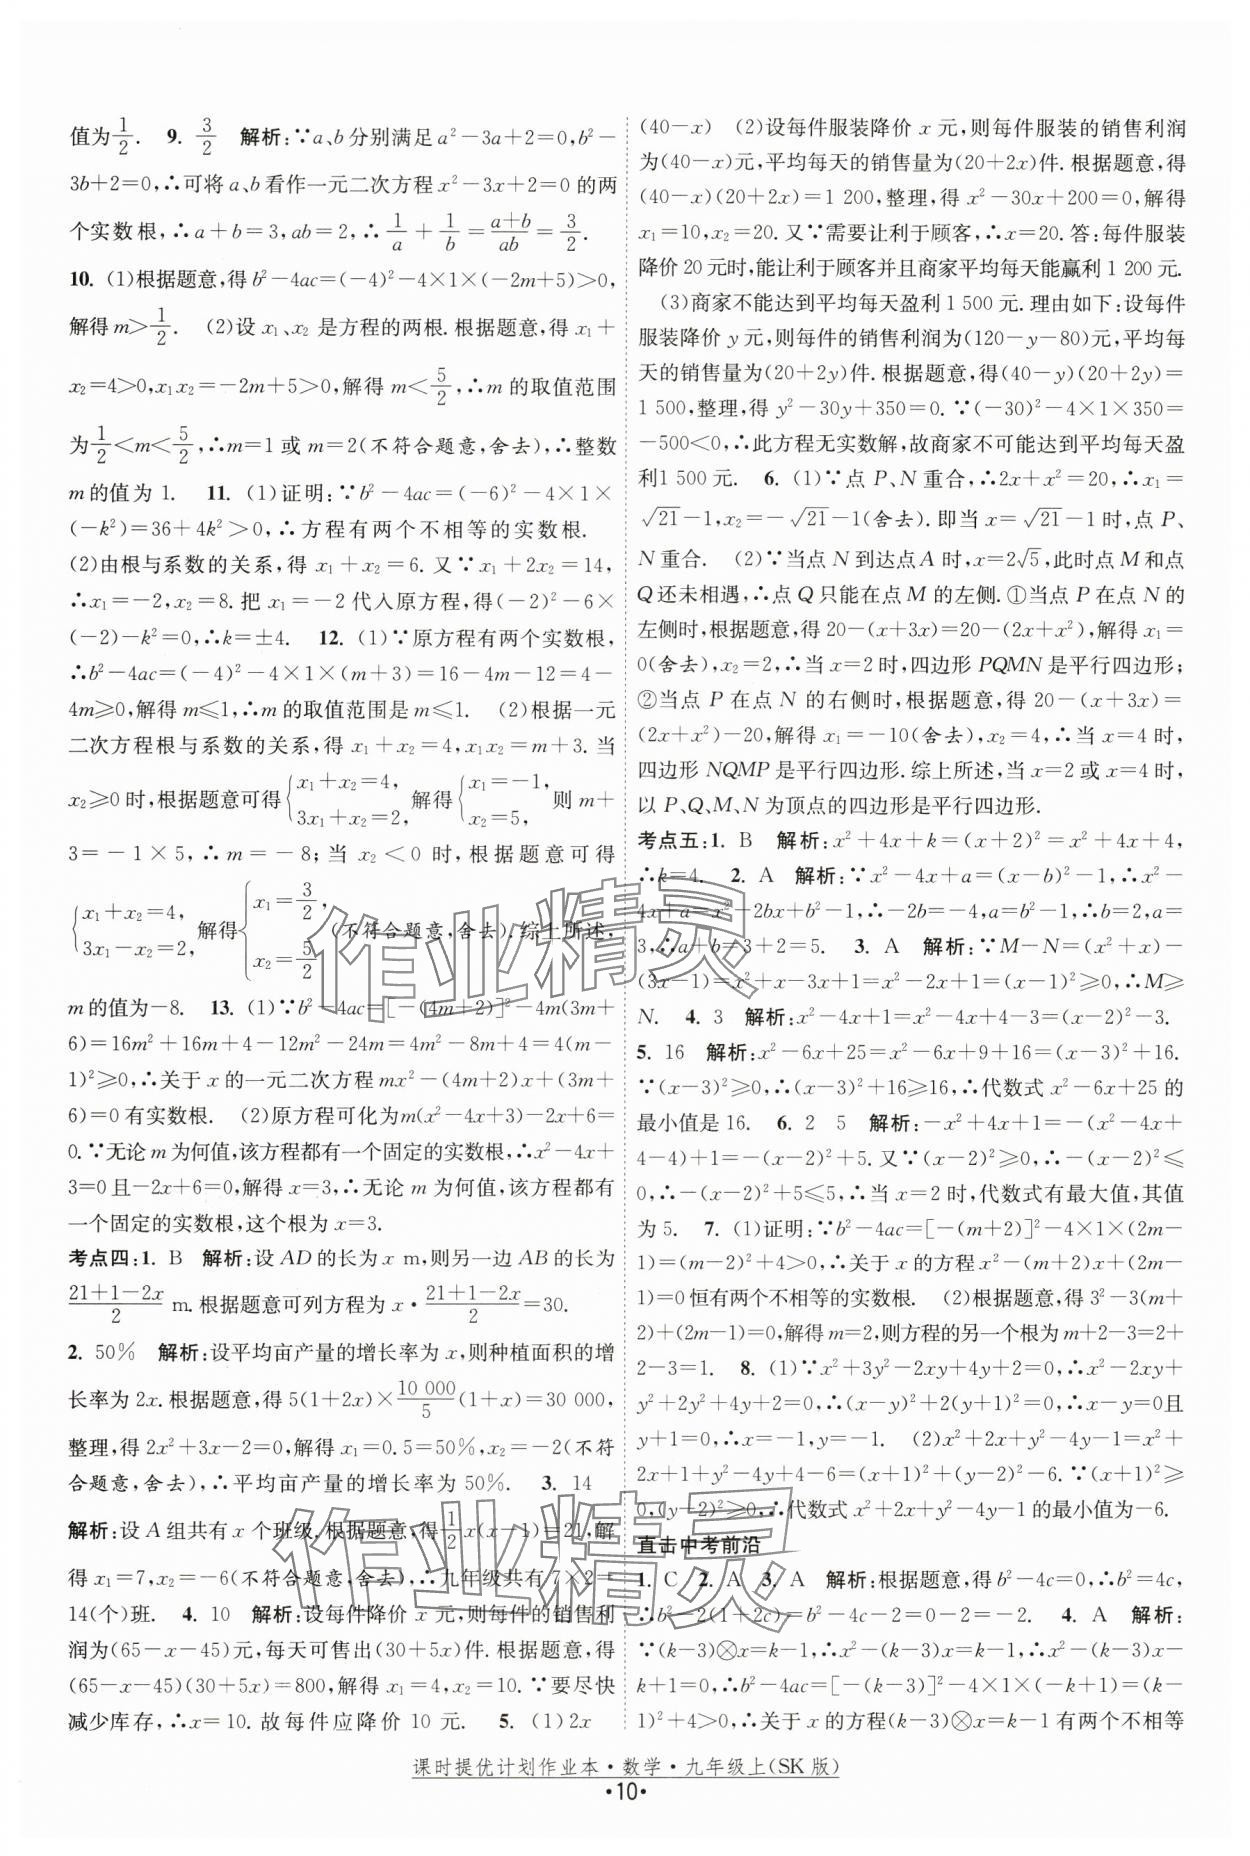 值为1/2. 9. 3/2 解析:∵a、b分别满足a²-3a+2=0,b²-
3b+2=0,∴可将a、b看作一元二次方程x²-3x+2=0的两
个实数根,∴a+b=3,ab=2,∴1/a+1/b=(a+b)/ab=3/2.
10. (1)根据题意,得b²-4ac=(-4)²-4×1×(-2m+5)>0,
解得m>1/2. (2)设x₁、x₂是方程的两根.根据题意,得x₁+
x₂=4>0,x₁x₂=-2m+5>0,解得m<5/2,∴m的取值范围
为1/2<m<5/2,∴m=1或m=2(不符合题意,舍去),∴整数
m的值为1. 11. (1)证明:∵b²-4ac=(-6)²-4×1×
(-k²)=36+4k²>0,∴方程有两个不相等的实数根.
(2)由根与系数的关系,得x₁+x₂=6.又∵x₁+2x₂=14,
∴x₁=-2,x₂=8.把x₁=-2代入原方程,得(-2)²-6×
(-2)-k²=0,∴k=±4. 12. (1)∵原方程有两个实数根,
∴b²-4ac=(-4)²-4×1×(m+3)=16-4m-12=4-
4m≥0,解得m≤1,∴m的取值范围是m≤1. (2)根据一元
二次方程根与系数的关系,得x₁+x₂=4,x₁x₂=m+3.当
x₂≥0时,根据题意可得{x₁+x₂=4, 3x₁+x₂=2,解得{x₁=-1, x₂=5,则m+
3=-1×5,∴m=-8;当x₂<0时,根据题意可得
{x₁+x₂=4, 3x₁-x₂=2,解得{x₁=3/2, x₂=5/2(不符合题意,舍去).综上所述,
m的值为-8. 13. (1)∵b²-4ac=[-(4m+2)]²-4m(3m+
6)=16m²+16m+4-12m²-24m=4m²-8m+4=4(m-
1)²≥0,∴关于x的一元二次方程mx²-(4m+2)x+(3m+
6)=0有实数根. (2)原方程可化为m(x²-4x+3)-2x+6=
0.∵无论m为何值,该方程都有一个固定的实数根,∴x²-4x+
3=0且-2x+6=0,解得x=3,∴无论m为何值,该方程都有
一个固定的实数根,这个根为x=3.
考点四:1. B 解析:设AD的长为x m,则另一边AB的长为
(21+1-2x)/2 m.根据题意可列方程为x·(21+1-2x)/2=30.
2. 50% 解析:设平均亩产量的增长率为x,则种植面积的增
长率为2x.根据题意,得5(1+2x)×10 000/5(1+x)=30 000,
整理,得2x²+3x-2=0,解得x₁=0.5=50%,x₂=-2(不符
合题意,舍去),∴平均亩产量的增长率为50%. 3. 14
解析:设A组共有x个班级.根据题意,得1/2x(x-1)=21,解
得x₁=7,x₂=-6(不符合题意,舍去),∴九年级共有7×2=
14(个)班. 4. 10 解析:设每件降价x元,则每件的销售利
润为(65-x-45)元,每天可售出(30+5x)件.根据题意,得
(65-x-45)(30+5x)=800,解得x₁=4,x₂=10.∵要尽快
减少库存,∴x=10.故每件应降价10元. 5. (1)2x
(40-x) (2)设每件服装降价x元,则每件服装的销售利润
为(40-x)元,平均每天的销售量为(20+2x)件.根据题意,得
(40-x)(20+2x)=1 200,整理,得x²-30x+200=0,解得
x₁=10,x₂=20.又∵需要让利于顾客,∴x=20.答:每件服装
降价20元时,能让利于顾客并且商家平均每天能赢利1 200元.
(3)商家不能达到平均每天盈利1 500元.理由如下:设每件
服装降价y元,则每件的销售利润为(120-y-80)元,平均每
天的销售量为(20+2y)件.根据题意,得(40-y)(20+2y)=
1 500,整理,得y²-30y+350=0.∵(-30)²-4×1×350=
-500<0,∴此方程无实数解,故商家不可能达到平均每天盈
利1 500元. 6. (1)∵点P、N重合,∴2x+x²=20,∴x₁=
√21-1,x₂=-√21-1(舍去).即当x=√21-1时,点P、
N重合. (2)∵当点N到达点A时,x=2√5,此时点M和点
Q还未相遇,∴点Q只能在点M的左侧.①当点P在点N的
左侧时,根据题意,得20-(x+3x)=20-(2x+x²),解得x₁=
0(舍去),x₂=2,∴当x=2时,四边形PQMN是平行四边形;
②当点P在点N的右侧时,根据题意,得20-(x+3x)=
(2x+x²)-20,解得x₁=-10(舍去),x₂=4,∴当x=4时,
四边形NQMP是平行四边形.综上所述,当x=2或x=4时,
以P、Q、M、N为顶点的四边形是平行四边形.
考点五:1. B 解析:x²+4x+k=(x+2)²=x²+4x+4,
∴k=4. 2. A 解析:∵x²-4x+a=(x-b)²-1,∴x²-
4x+a=x²-2bx+b²-1,∴-2b=-4,a=b²-1,∴b=2,a=
3,∴a+b=3+2=5. 3. A 解析:∵M-N=(x²+x)-
(3x-1)=x²+x-3x+1=x²-2x+1=(x-1)²≥0,∴M≥
N. 4. 3 解析:x²-4x+1=x²-4x+4-3=(x-2)²-3.
5. 16 解析:x²-6x+25=x²-6x+9+16=(x-3)²+16.
∵(x-3)²≥0,∴(x-3)²+16≥16,∴代数式x²-6x+25的
最小值是16. 6. 2 5 解析:-x²+4x+1=-(x²-4x+
4-4)+1=-(x-2)²+5.又∵(x-2)²≥0,∴-(x-2)²≤
0,∴-(x-2)²+5≤5,∴当x=2时,代数式有最大值,其值
为5. 7. (1)证明:∵b²-4ac=[-(m+2)]²-4×1×(2m-
1)=(m-2)²+4>0,∴关于x的方程x²-(m+2)x+(2m-
1)=0恒有两个不相等的实数根. (2)根据题意,得3²-3(m+
2)+(2m-1)=0,解得m=2,则方程的另一个根为m+2-3=2+
2-3=1. 8. (1)∵x²+3y²-2xy+4y+2=0,∴x²-2xy+
y²+2y²+4y+2=0,∴(x-y)²+2(y+1)²=0,∴x-y=0且
y+1=0,∴x=-1,y=-1. (2)x²+2x+y²-4y-1=x²+
2x+1+y²-4y+4-6=(x+1)²+(y-2)²-6.∵(x+1)²≥
0,(y-2)²≥0,∴代数式x²+2x+y²-4y-1的最小值为-6.
直击中考前沿
1. C 2. A 3. A 解析:根据题意,得b²-4c=0,∴b²=4c,
∴b²-2(1+2c)=b²-4c-2=0-2=-2. 4. A 解析:
∵(k-3)⊗x=k-1,∴x²-(k-3)x=k-1,∴x²-(k-3)x-
k+1=0,∴b²-4ac=[-(k-3)]²-4×1×(-k+1)=(k-
1)²+4>0,∴关于x的方程(k-3)⊗x=k-1有两个不相等
作业精灵
作业精灵
课时提优计划作业本·数学·九年级上(SK版)
·10·